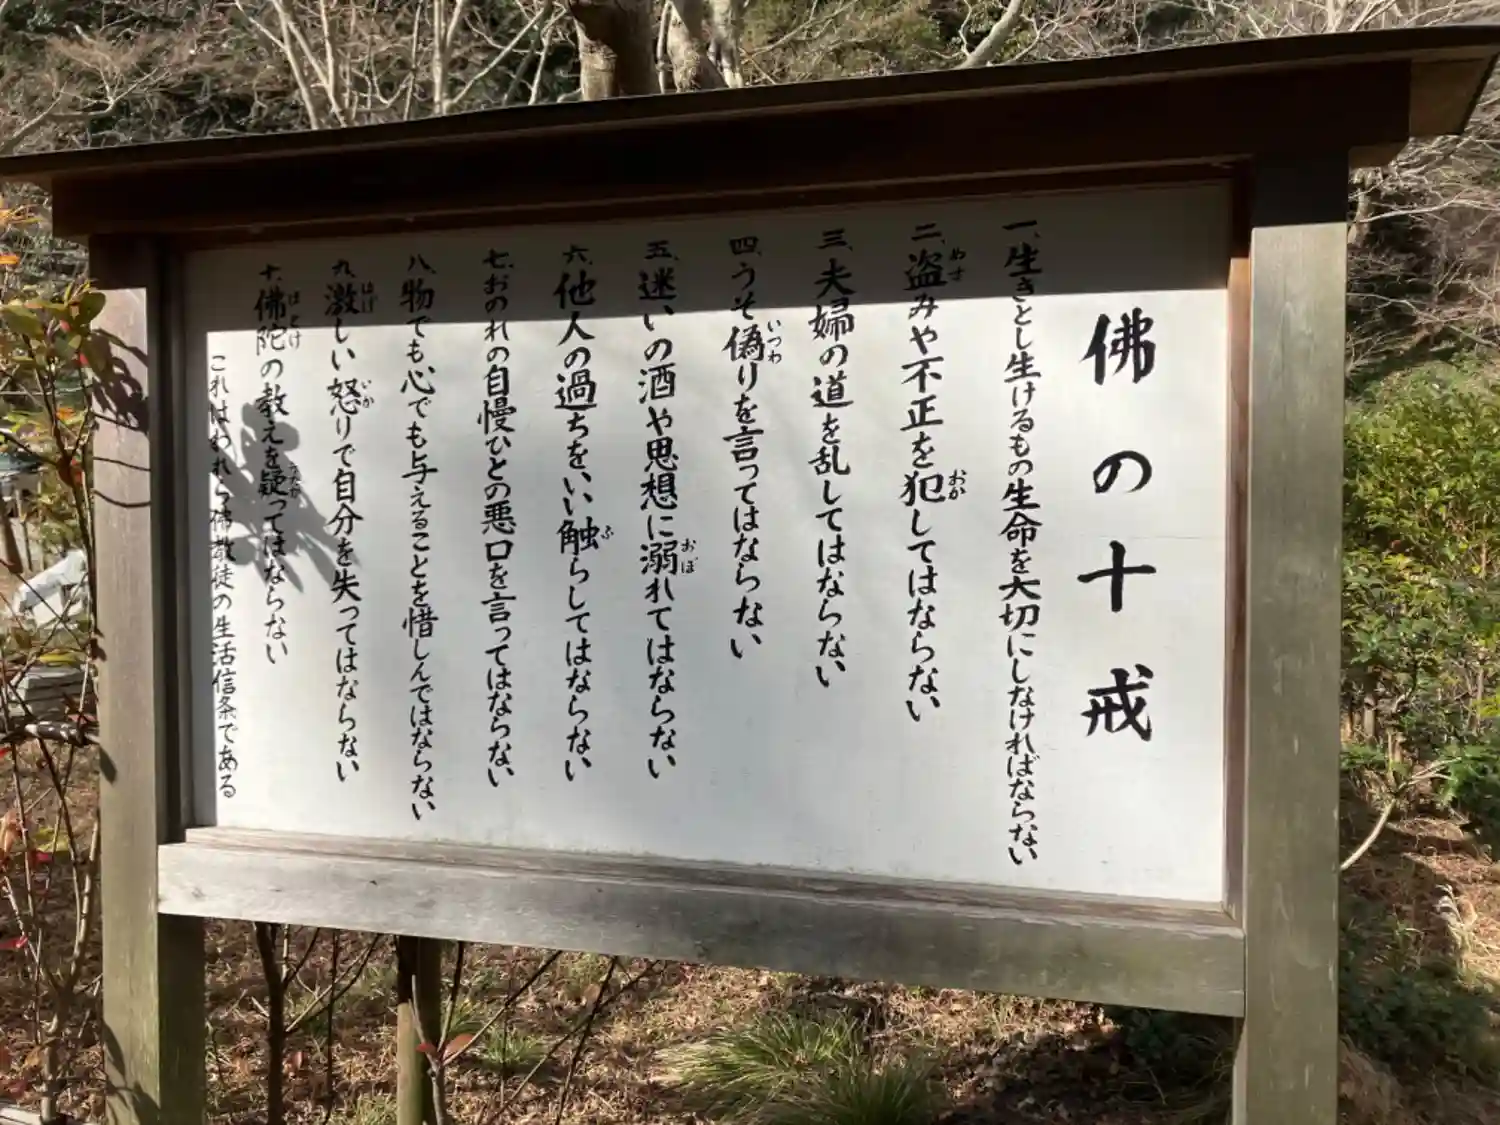 佛の十戒
一、生きとし生けるもの生命を大切にしなければならない
二、盗みや不正を犯してはならない
三、夫婦の道を乱してはならない
四、うそ偽りを言ってはならない
五、迷いの酒や思想に溺れてはならない
六、他人の過ちをいい触らしてはならない
七、おのれの自慢ひとの悪口を言ってはならない
八、物でも心でも与えることを惜しんではならない
九、激しい怒りで自分を失ってはならない
十、佛陀の教えを疑ってはならない
これはわれら佛教徒の生活信条である